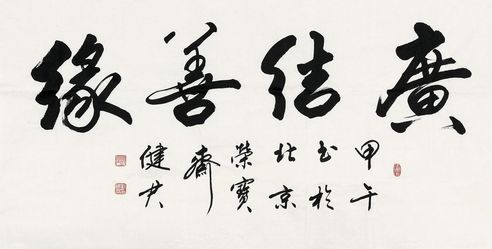 廣結善緣
甲午
書於
北京
榮寶
齋
健君